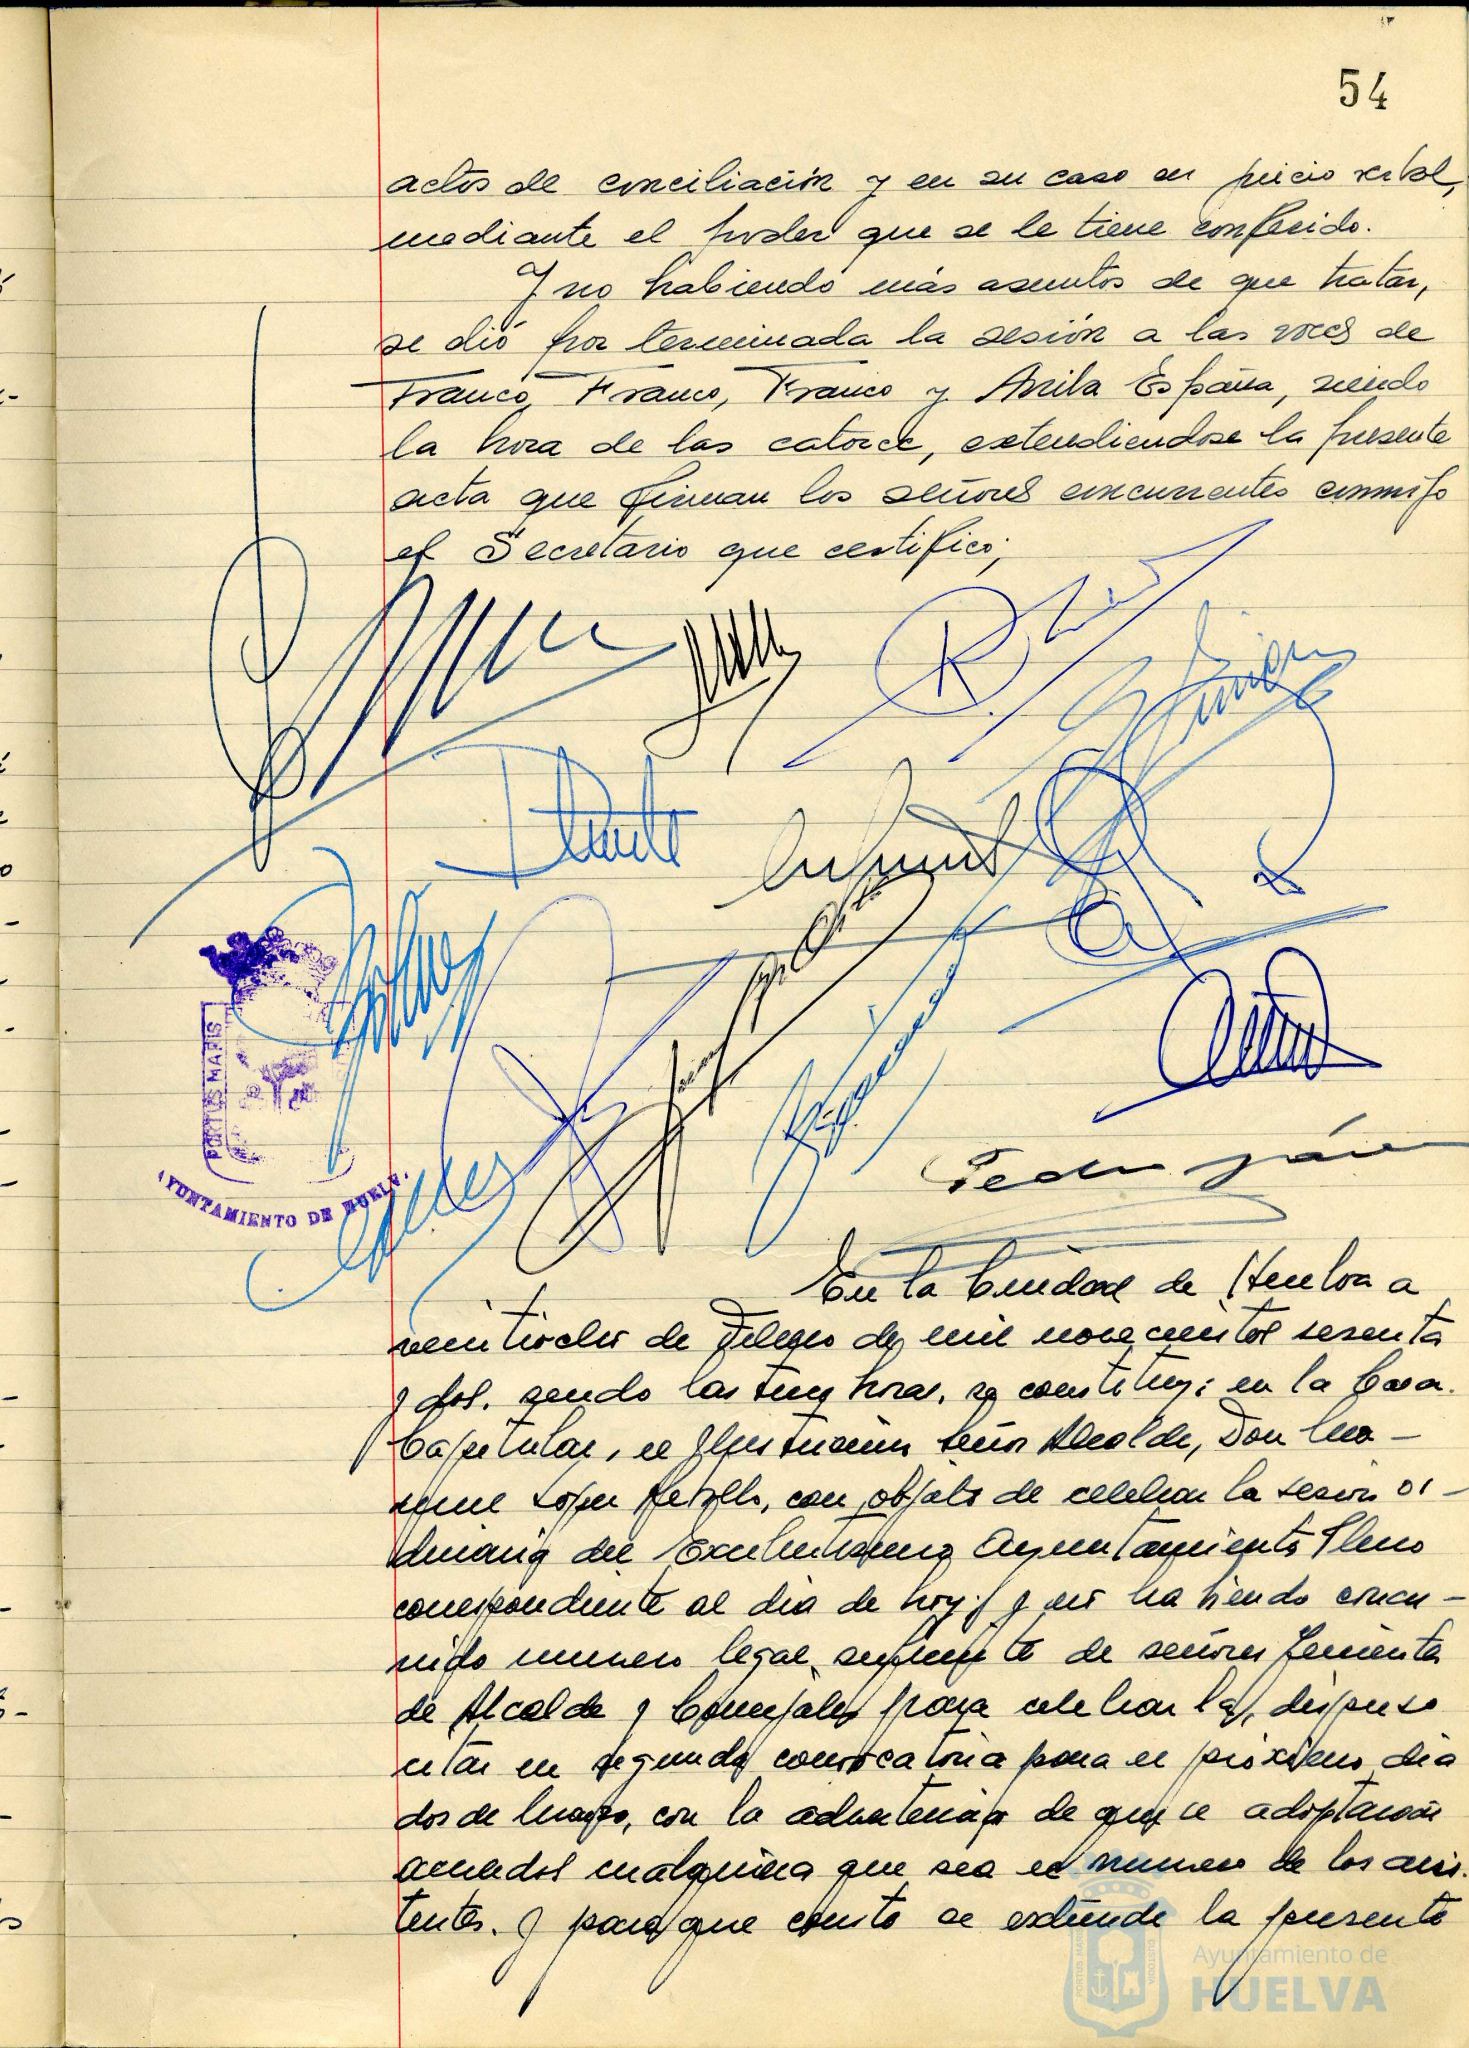 54
actos de conciliación y en su caso en juicio verbal,
mediante el poder que se le tiene conferido.
Y no habiendo más asuntos de que tratar,
se dió por terminada la sesión a las voces de
Franco, Franco, Franco y Arriba España, siendo
la hora de las catorce, extendiendose la presente
acta que firman los señores concurrentes conmigo
el Secretario que certifico;
PORTUS MARIS
AYUNTAMIENTO DE HUELVA
Pedro
En la Ciudad de Huelva a
de Febrero de mil novecientos sesenta
y dos, siendo las horas, se constituyó en la Casa
Capitular, el Ilustrísimo Señor Alcalde, Don
con objeto de celebrar la sesión or-
dinaria del Excelentísimo Ayuntamiento Pleno
correspondiente al dia de hoy, y no habiendo concu-
rrido numero legal suficiente de señores Tenientes
de Alcalde y Concejales para celebrarla, dispuso
citar en segunda convocatoria para el próximo dia
dos de Marzo, con la advertencia de que se adoptarán
acuerdos cualquiera que sea el numero de los asis-
tentes. Y para que conste se extiende la presente
Ayuntamiento de
HUELVA